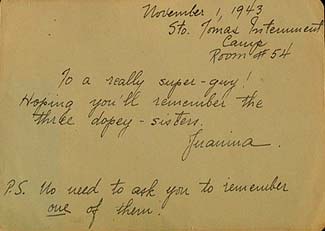 November 1, 1943
Sto. Tomas Internment
Camp
Room #54
To a really super-guy!
Hoping you'll remember the
three dopey-sisters.
Juanina.
P.S. No need to ask you to remember
one of them.